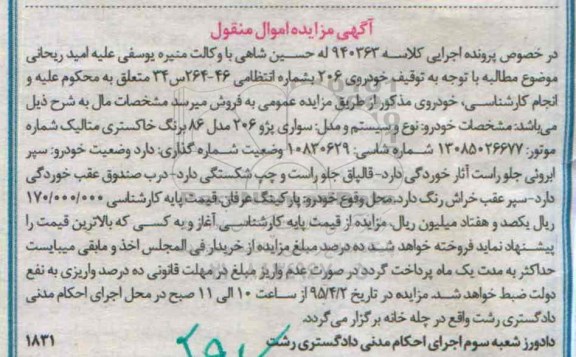 آگهی مزایده اموال منقول
در خصوص پرونده اجرایی کلاسه ۹۴۰۳۶۳ له حسین شاهی با وکالت منیره یوسفی علیه امید ریحانی
موضوع مطالبه با توجه به توقیف خودروی ۲۰۶ بشماره انتظامی ۴۶-۲۶۴س۳۴ متعلق به محکوم علیه و
انجام کارشناسی، خودروی مذکور از طریق مزایده عمومی به فروش میرسد مشخصات مال به شرح ذیل
می‌باشد: مشخصات خودرو: نوع و سیستم و مدل: سواری پژو ۲۰۶ مدل ۸۶ برنگ خاکستری متالیک شماره
موتور: ۱۳۰۸۵۰۲۶۶۷۷ شماره شاسی: ۱۰۸۲۰۶۲۹ وضعیت شماره گذاری: دارد وضعیت خودرو: سپر
ابروئی جلو راست آثار خوردگی دارد- قالپاق جلو راست و چپ شکستگی دارد- درب صندوق عقب خوردگی
دارد-سپر عقب خراش رنگ دارد. محل وقوع خودرو: پارکینگ عرفان. قیمت پایه کارشناسی ۱۷۰/۰۰۰/۰۰۰
ریال یکصد و هفتاد میلیون ریال. مزایده از قیمت پایه کارشناسی آغاز و به کسی که بالاترین قیمت را
پیشنهاد نماید فروخته خواهد شد ده درصد مبلغ مزایده از خریدار فی المجلس اخذ و مابقی میبایست
حداکثر به مدت یک ماه پرداخت گردد در صورت عدم واریز مبلغ در مهلت قانونی ده درصد واریزی به نفع
دولت ضبط خواهد شد. مزایده در تاریخ ۹۵/۴/۲ از ساعت ۱۰ الی ۱۱ صبح در محل اجرای احکام مدنی
دادگستری رشت واقع در چله خانه برگزار می‌گردد.
دادورز شعبه سوم اجرای احکام مدنی دادگستری رشت ۱۸۳۱